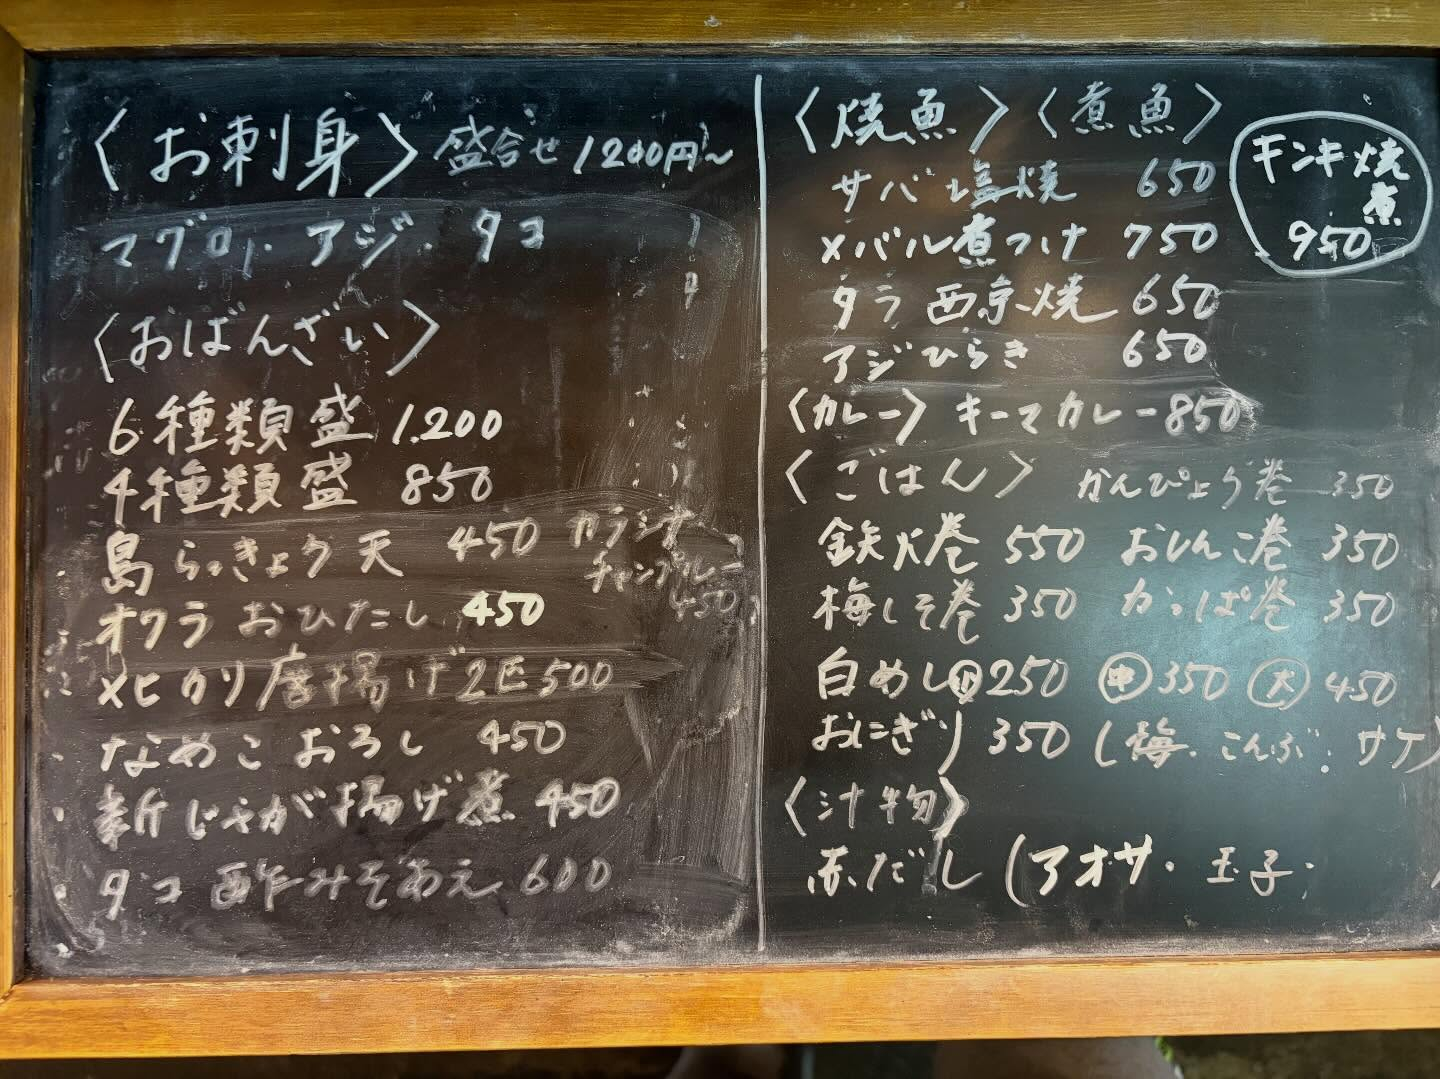 〈お刺身〉盛合せ1200円〜
マグロ,アジ.タコ
〈おばんざい〉
6種類盛 1.200
4種類盛 850
島らっきょう天 450
カラシナ
チャンプルー
450
オクラおひたし 450
メヒカリ唐揚げ2匹500
なめこおろし 450
新じゃが揚げ煮 450
タコ酢みそあえ 600
〈焼魚〉〈煮魚〉
サバ塩焼 650
メバル煮つけ 750
タラ西京焼 650
アジひらき 650
キンキ焼
煮
950
〈カレー〉キーマカレー850
〈ごはん〉 かんぴょう巻 350
鉄火巻 550 おしんこ巻 350
梅しそ巻 350 かっぱ巻 350
白めし小250 中350 大450
おにぎり 350 (梅.こんぶ.サケ)
〈汁物〉
赤だし(アオサ・玉子・